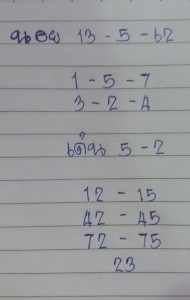 นอย 13 - 5 - 62
1 - 5 - 7
3 - 2 - 4
เด่น 5 - 2
12 - 15
42 - 45
72 - 75
23